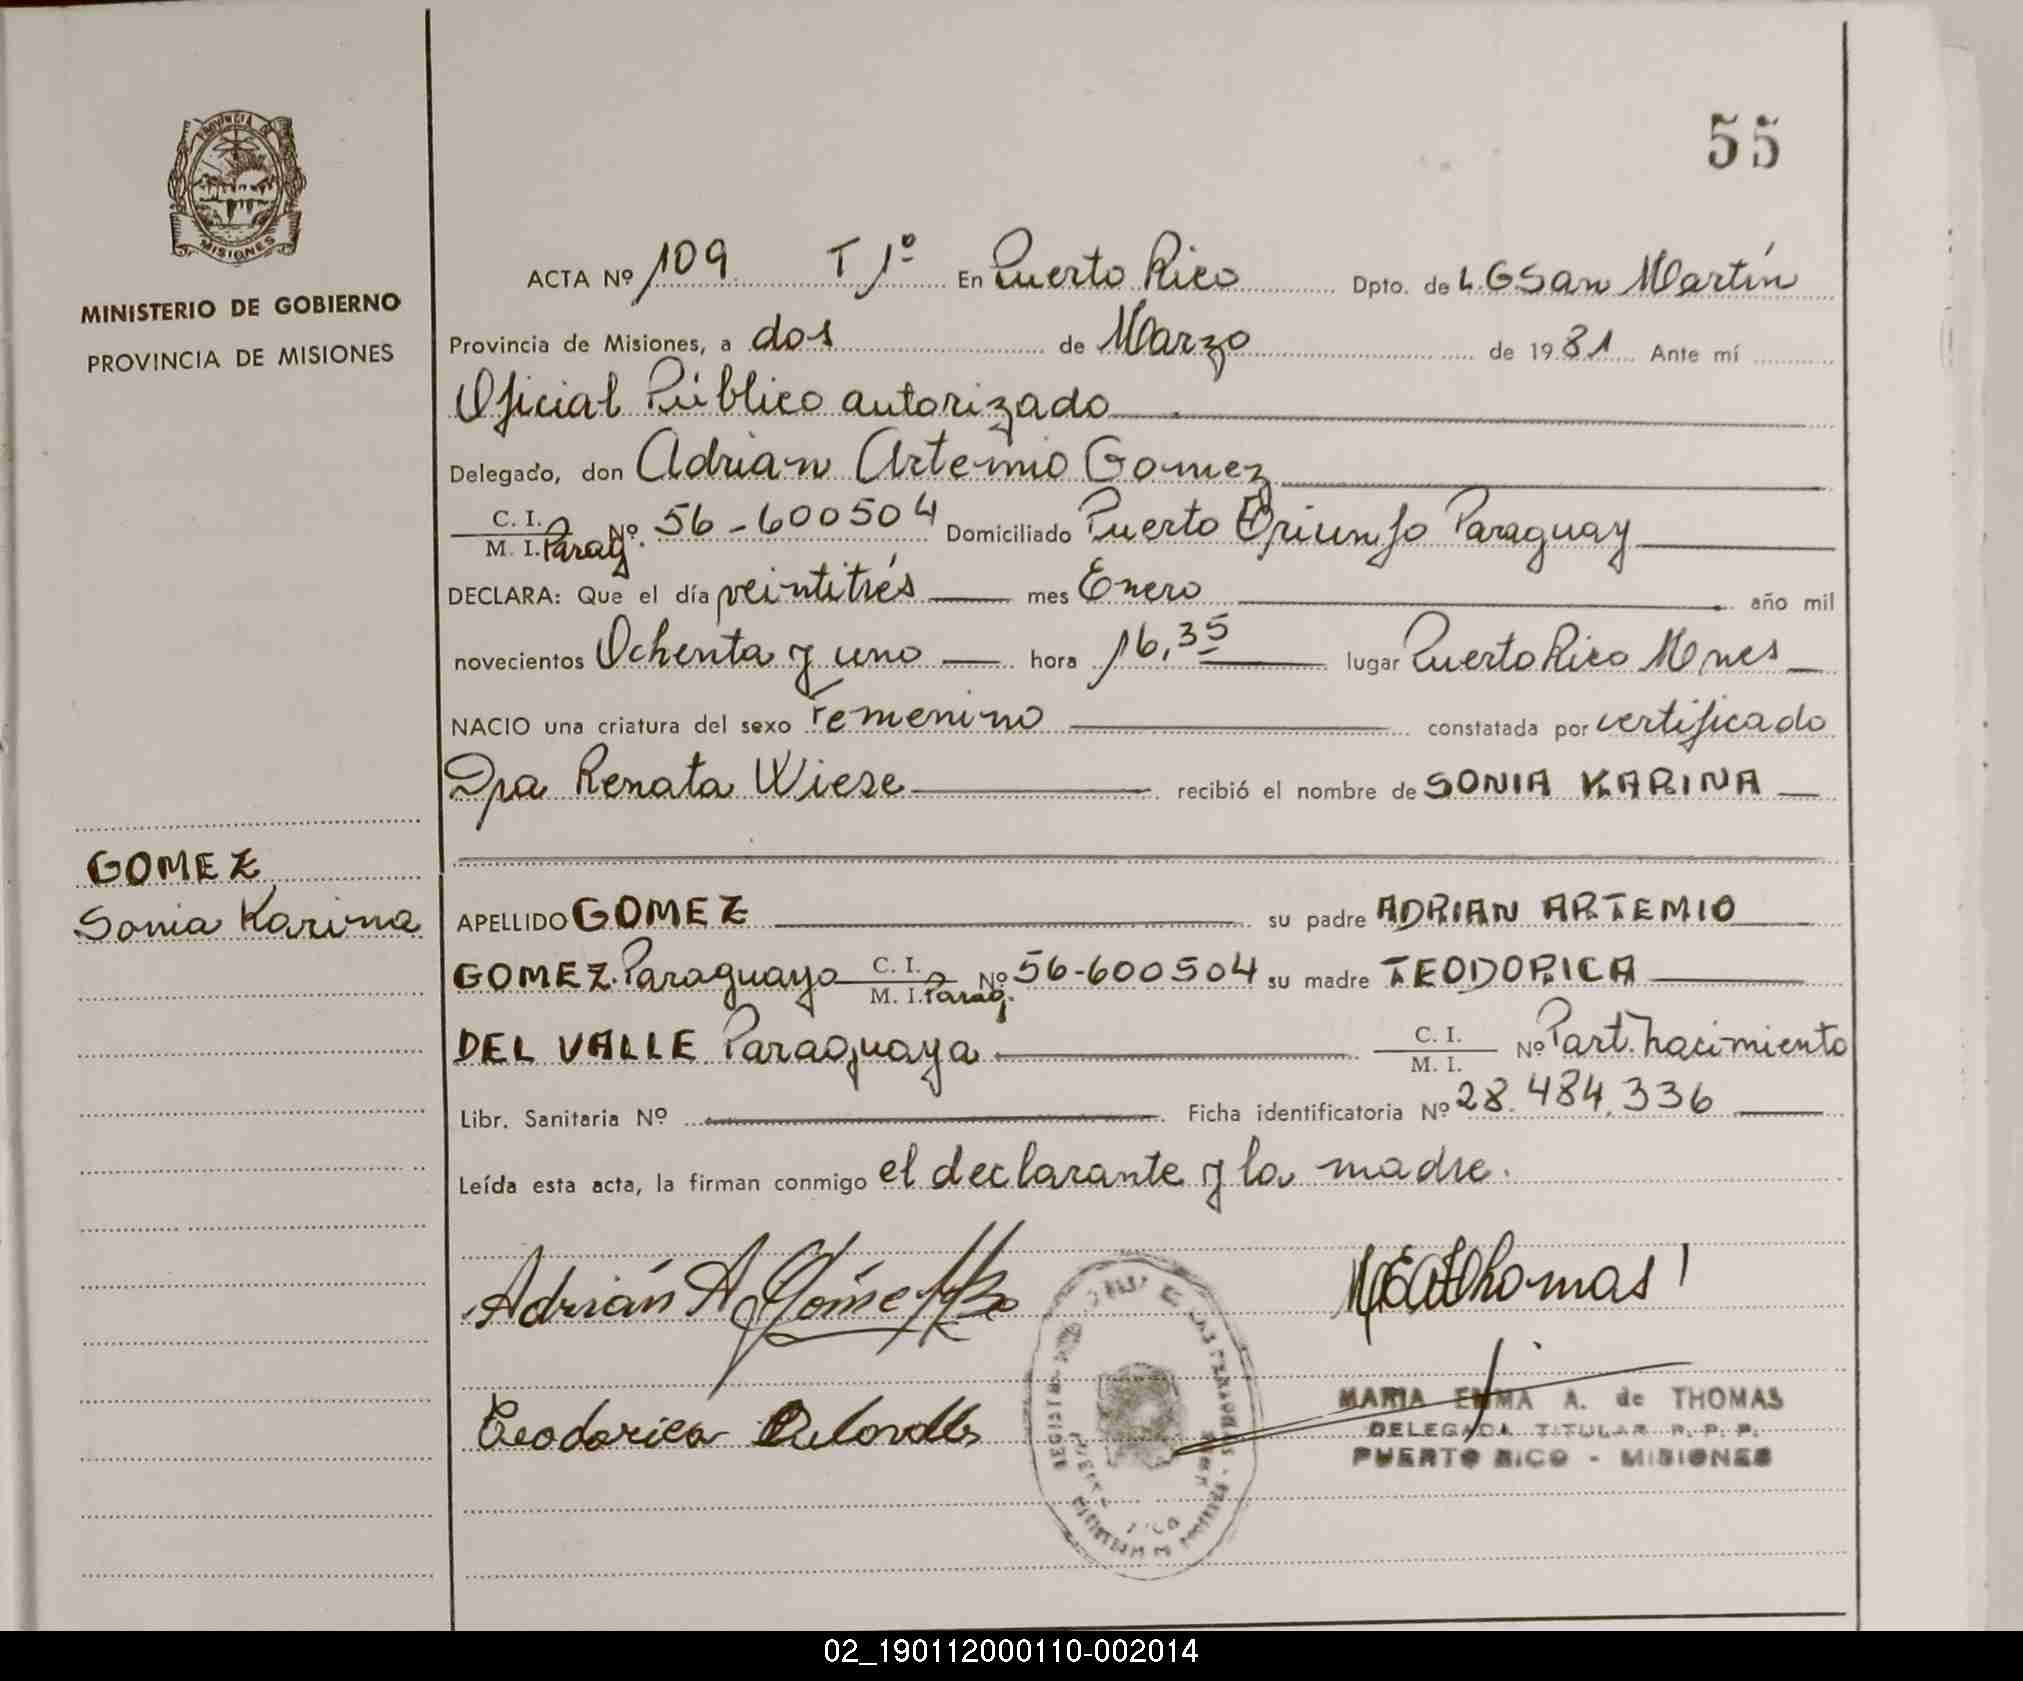 55
PROVINCIA DE
MISIONES
MINISTERIO DE GOBIERNO
PROVINCIA DE MISIONES
ACTA Nº 109 T 1º En Puerto Rico Dpto. de L.G San Martín
Provincia de Misiones, a dos de Marzo de 1981 Ante mí
Oficial Público autorizado
Delegado, don Adrian Artemio Gomez
C. I. / M. I. Parag Nº. 56-600504 Domiciliado Puerto Triunfo Paraguay
DECLARA: Que el día veintitrés mes Enero año mil
novecientos Ochenta y uno hora 16,35 lugar Puerto Rico Mnes
NACIO una criatura del sexo Femenino constatada por certificado
Dra Renata Wiese recibió el nombre de SONIA KARINA
GOMEZ
Sonia Karina
APELLIDO GOMEZ su padre ADRIAN ARTEMIO
GOMEZ. Paraguayo C. I. / M. I. Parag. Nº 56-600504 su madre TEODORICA
DEL VALLE Paraguaya C. I. / M. I. Nº Part. nacimiento
Libr. Sanitaria Nº Ficha identificatoria Nº 28.484.336
Leída esta acta, la firman conmigo el declarante y la madre.
Adrián A Gómez
Thomas
Teodorica
MARIA EMMA A. de THOMAS
DELEGADA TITULAR R. P. P.
PUERTO RICO - MISIONES
02_190112000110-002014